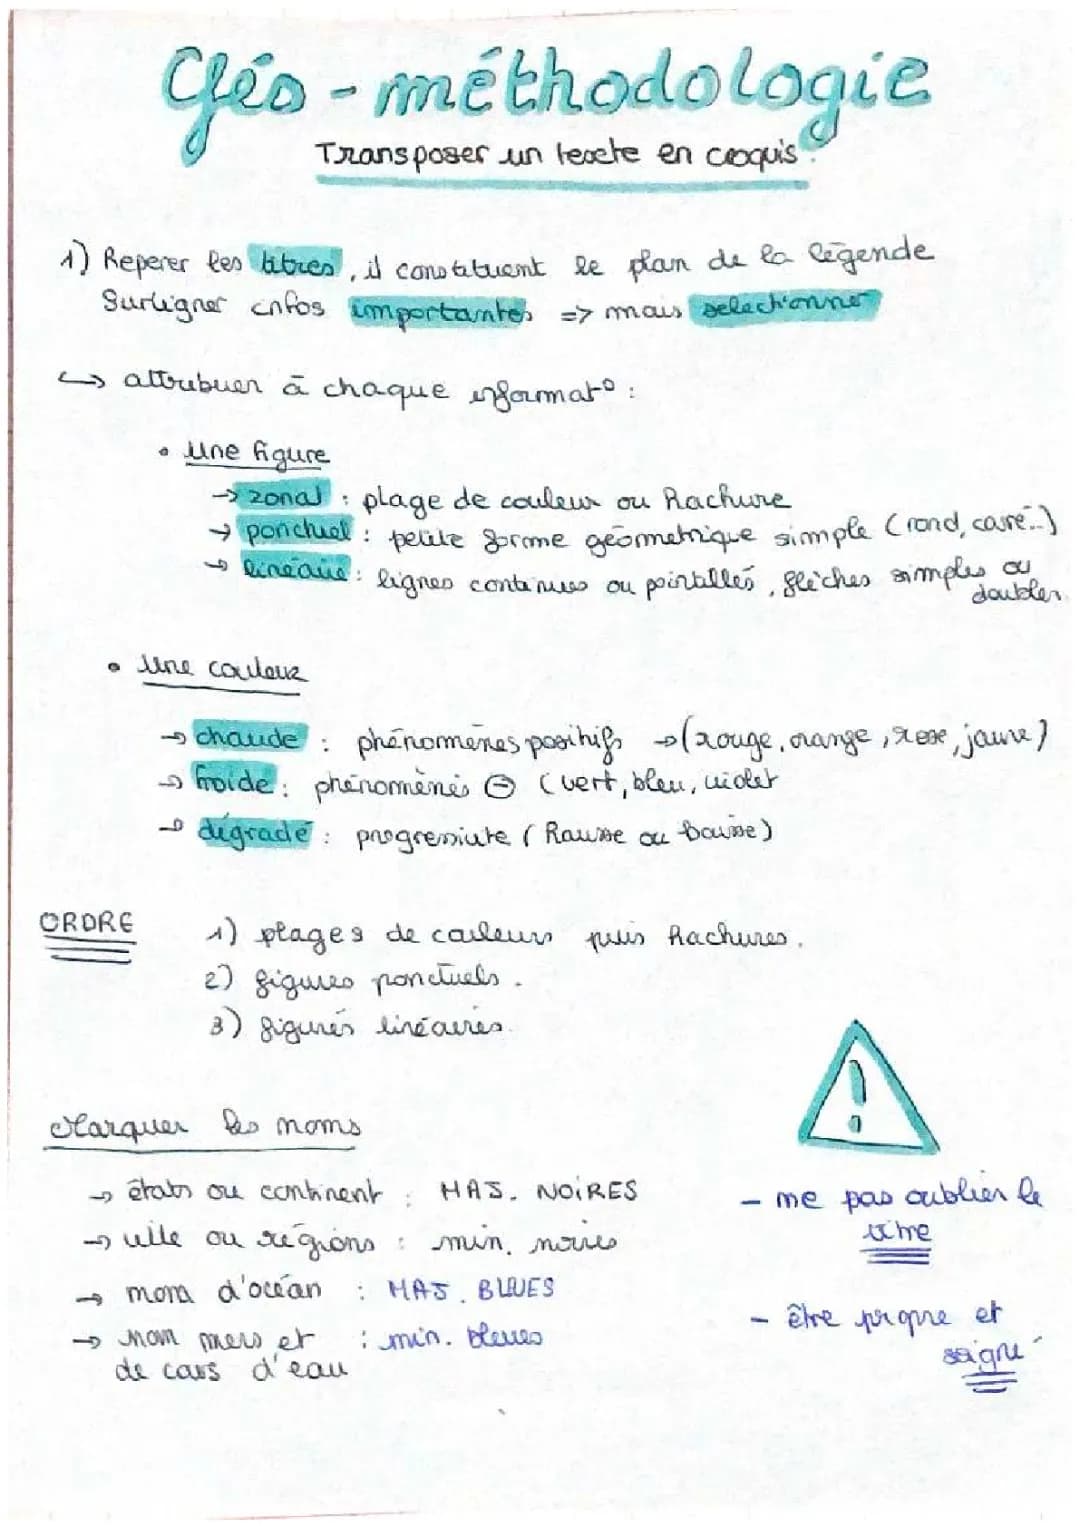 Géo - méthodologie
Transposer un texte en croquis.
1) Reperer les titres, il constituent le plan de la légende
Surligner infos importantes => mais selectionner
↳ attribuer à chaque informat° :
• une figure
→ zonal : plage de couleur ou hachure
→ ponctuel : petite forme géométrique simple (rond, carré...)
→ linéaire : lignes continues ou pointillés, flèches simples ou
doubles.
• Une couleur
→ chaude : phénomènes positifs → (rouge, orange, rose, jaune)
→ froide : phénomènes ⊖ (vert, bleu, violet
→ dégradé : progressivite (hausse ou baisse)
ORDRE
1) plages de couleurs puis hachures.
2) figures ponctuels.
3) figures linéaires.
Marquer les noms
→ états ou continent : MAJ. NOIRES
→ ville ou régions : min. noires
→ nom d'océan : MAJ. BLEUES
→ nom mers et : min. bleues
de cours d'eau
!
- ne pas oublier le
titre
- être propre et
soigné